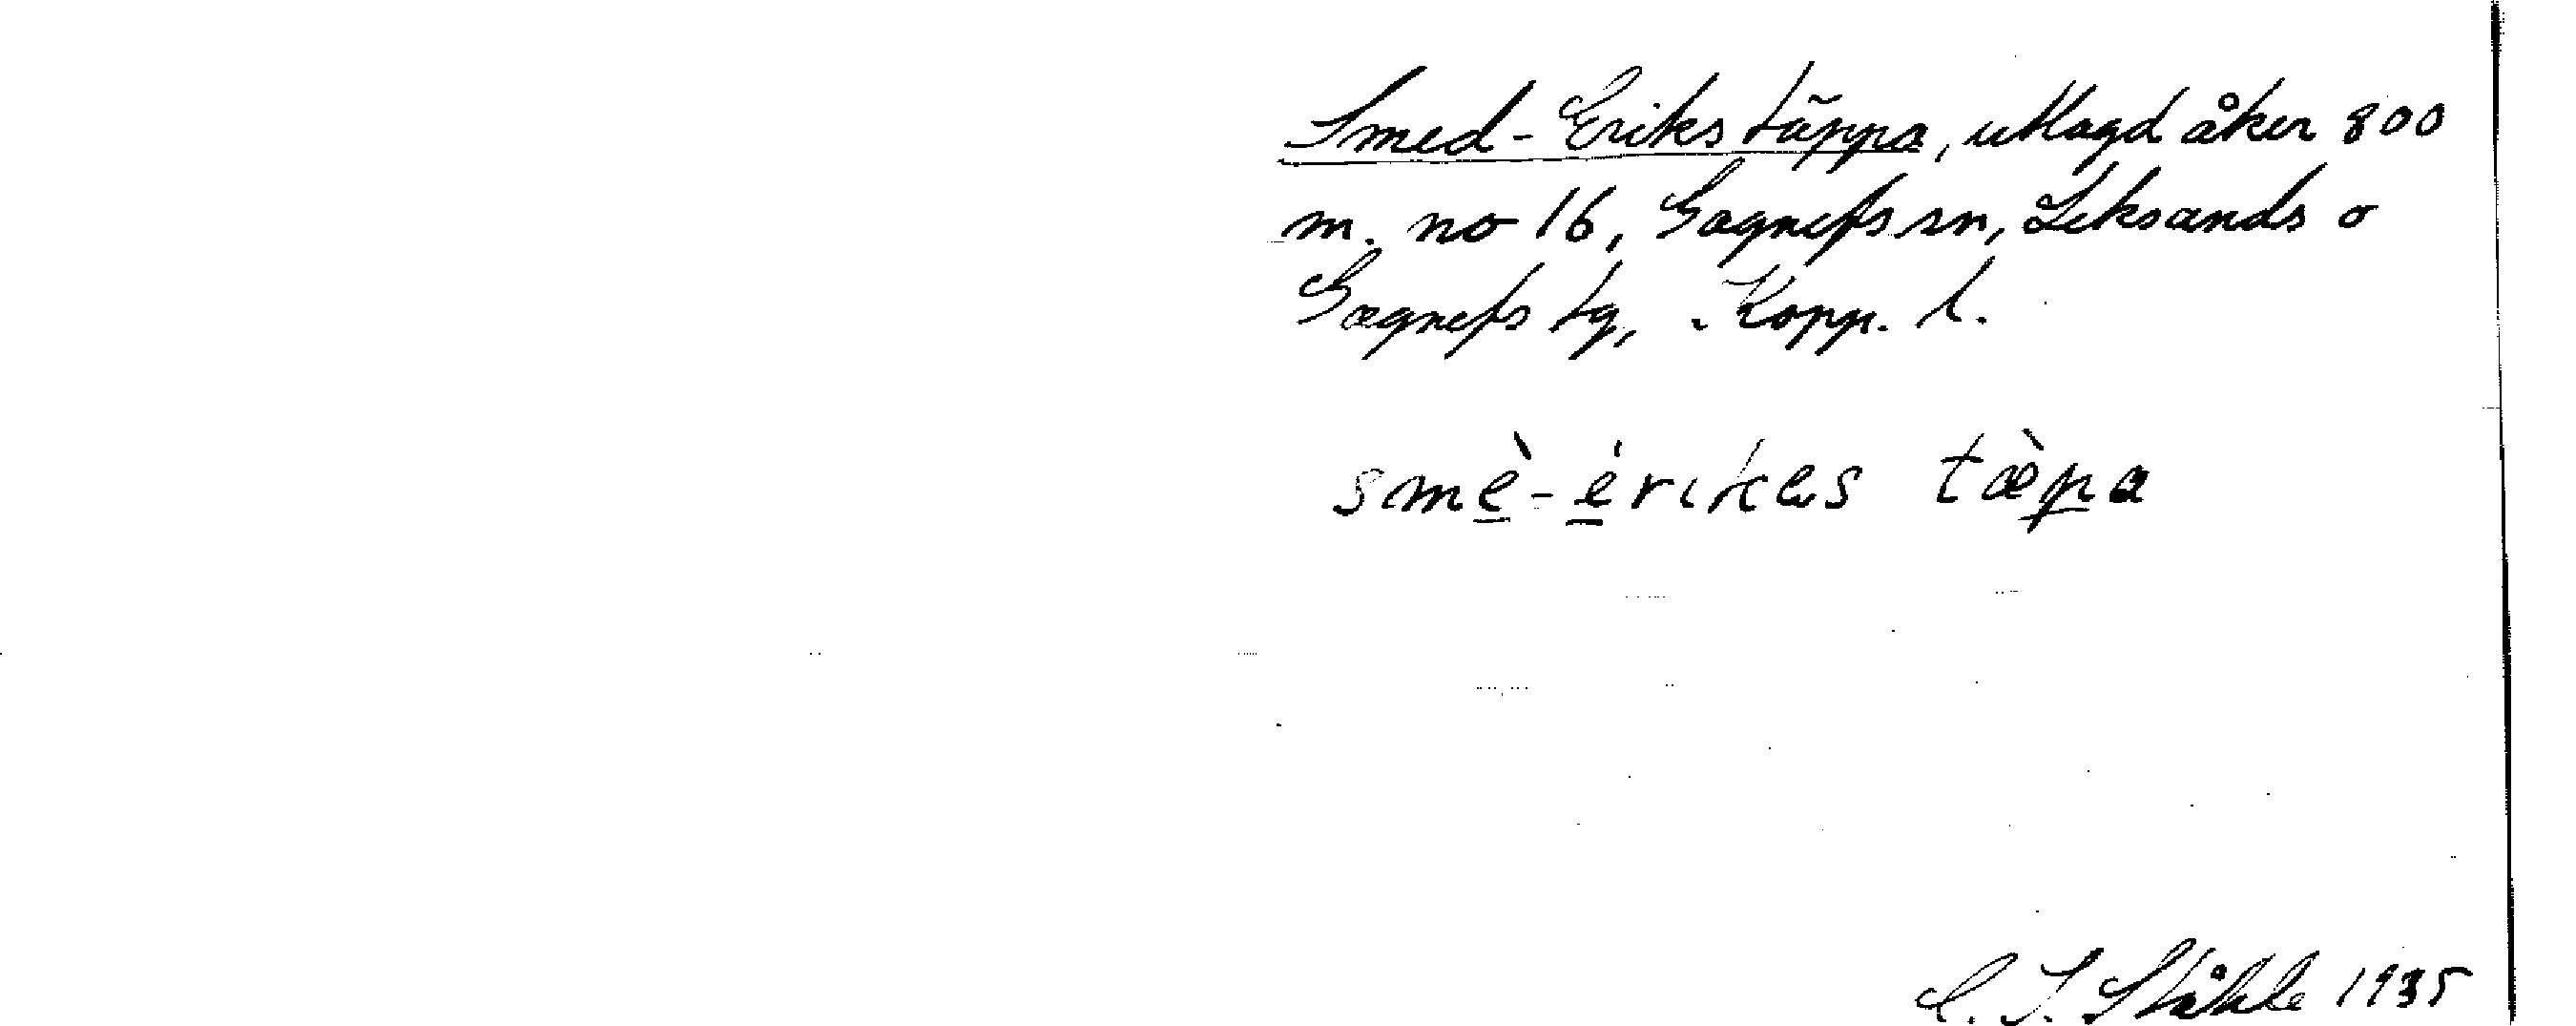 Smed-Eriks täppa, utlagd åker 800
m. no 16, Gagnefs sn, Leksands o
Gagnefs tg, Kopp. l.
smè-érikes tæ̀pa
C. I. Ståhle 1935